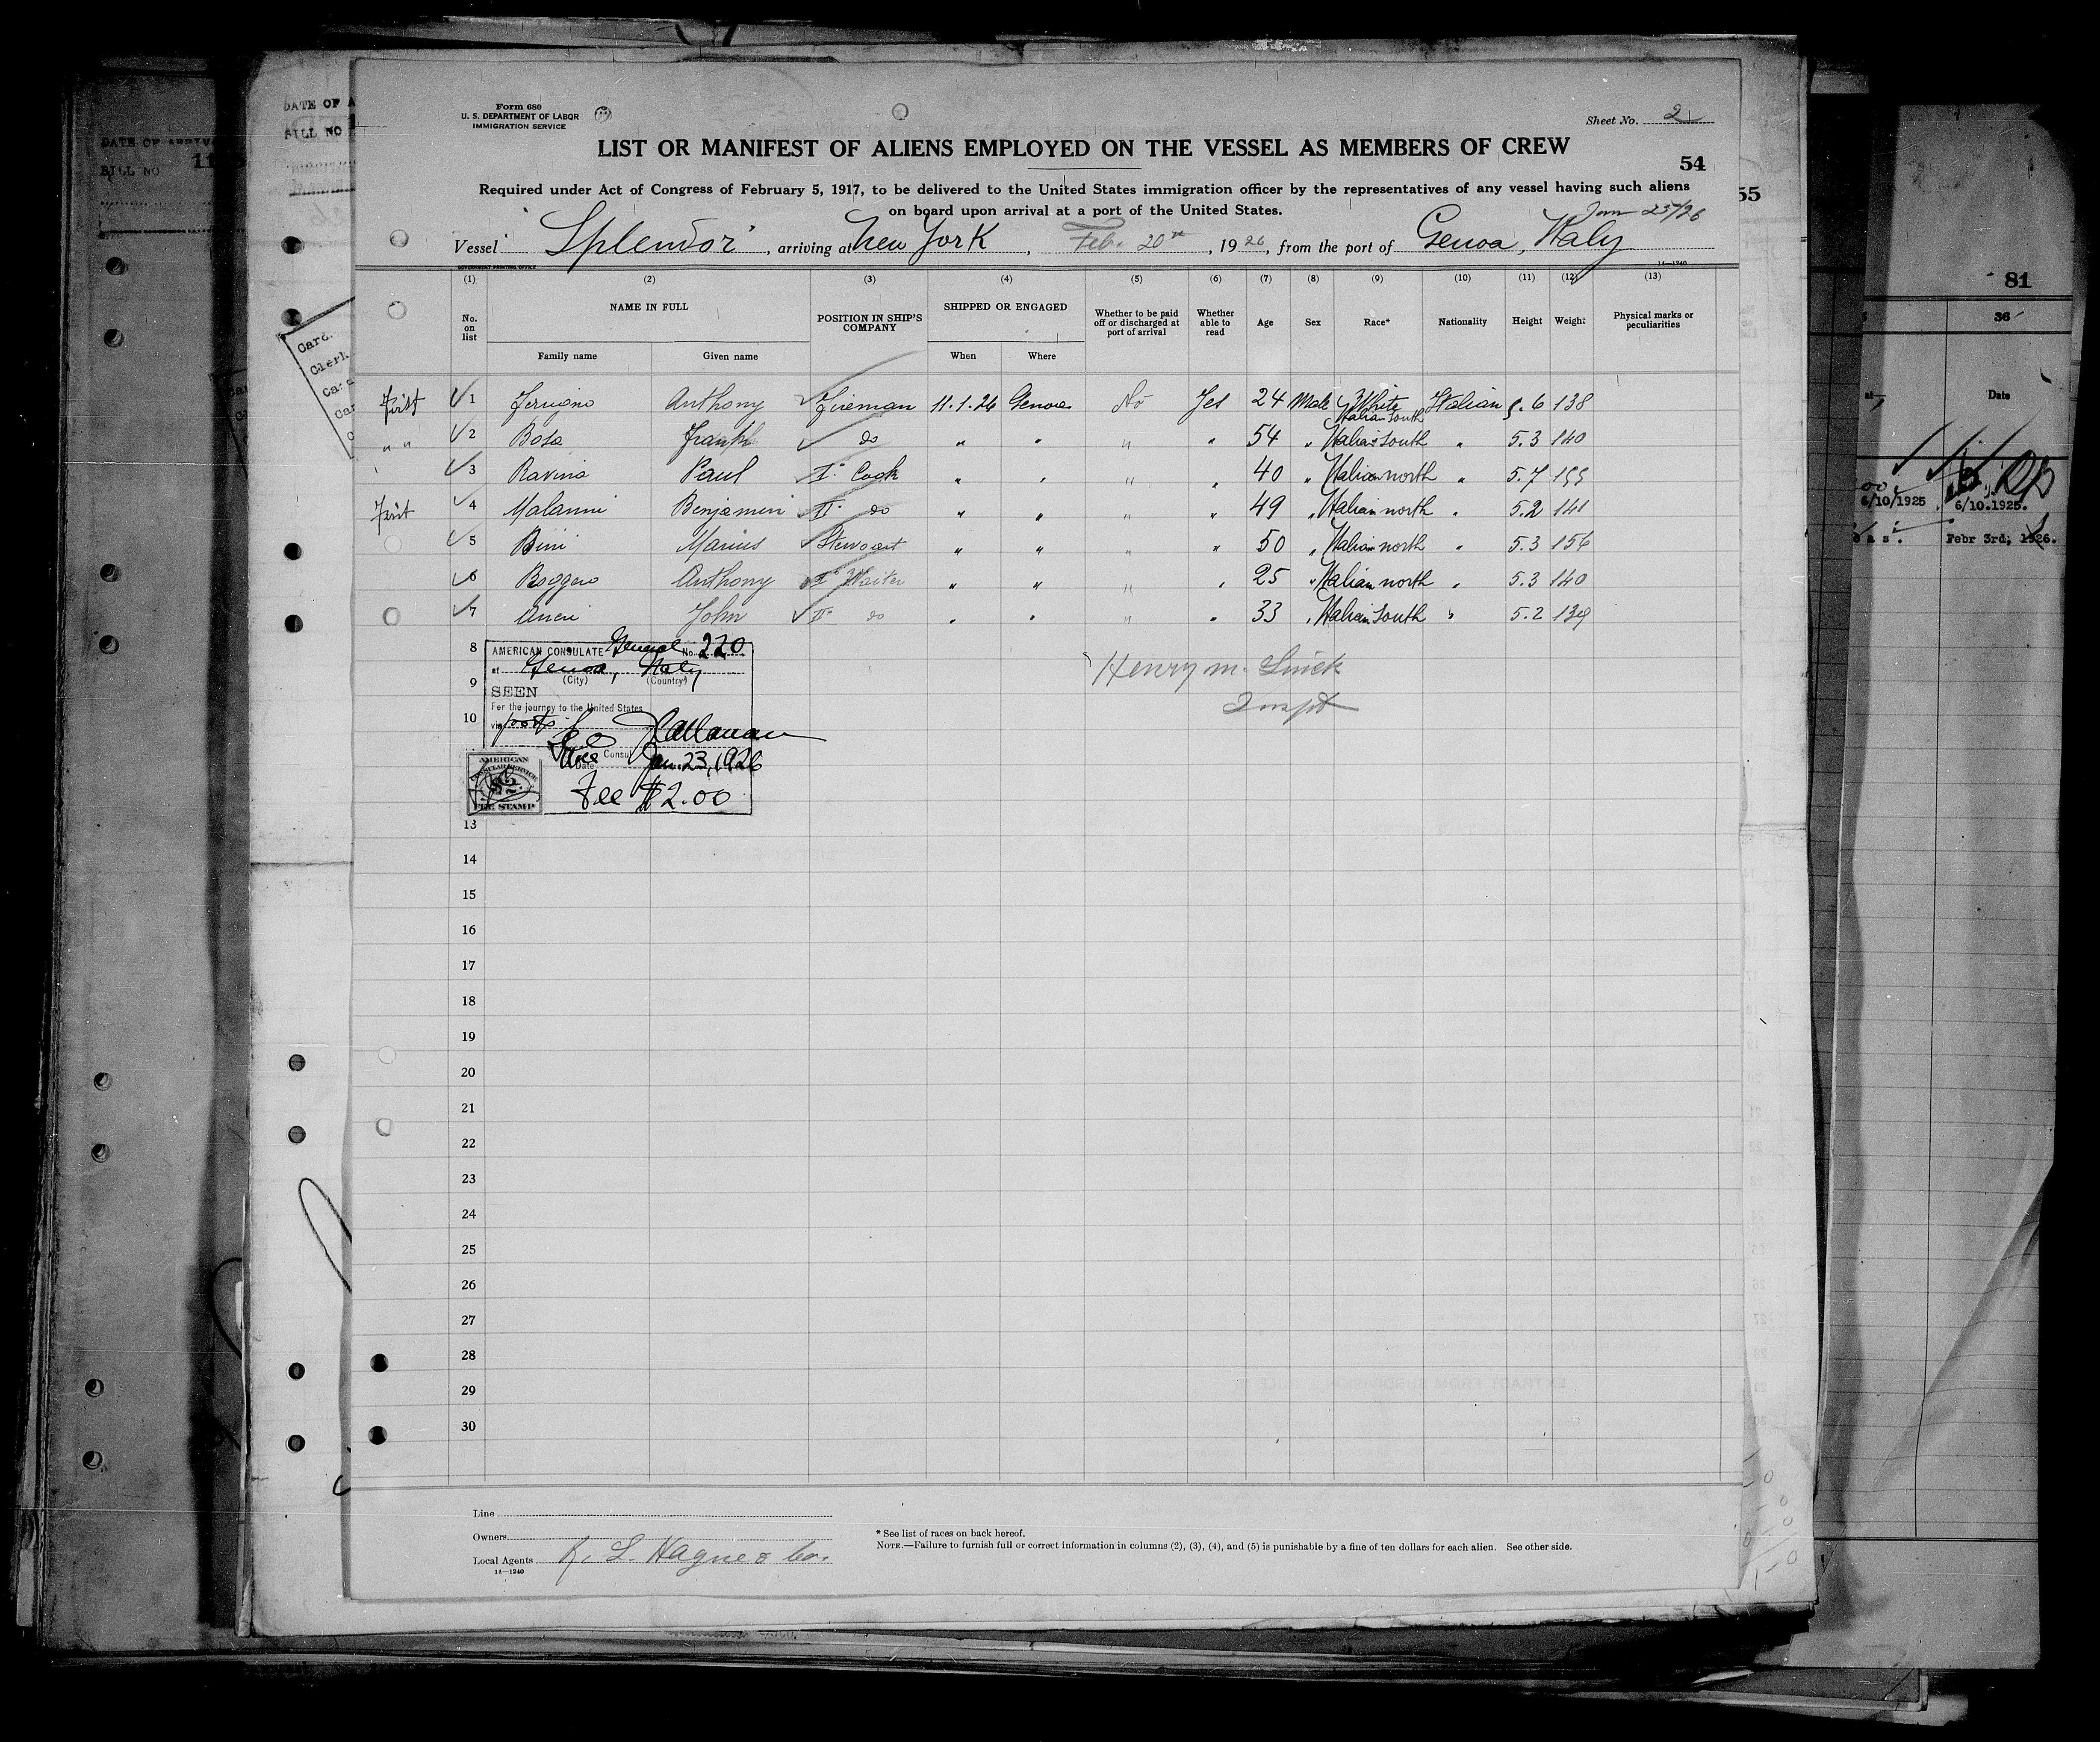 Form 680
U. S. DEPARTMENT OF LABOR
IMMIGRATION SERVICE
Sheet No. 2
LIST OR MANIFEST OF ALIENS EMPLOYED ON THE VESSEL AS MEMBERS OF CREW
54
Required under Act of Congress of February 5, 1917, to be delivered to the United States immigration officer by the representatives of any vessel having such aliens
on board upon arrival at a port of the United States.
55
Jan 25/26
Vessel Splendor, arriving at New York, Feb. 20th, 1926, from the port of Genoa, Italy
GOVERNMENT PRINTING OFFICE
14—1240
(1) (2) (3) (4) (5) (6) (7) (8) (9) (10) (11) (12) (13)
No. on list
NAME IN FULL
Family name Given name
POSITION IN SHIP'S COMPANY
SHIPPED OR ENGAGED
When Where
Whether to be paid off or discharged at port of arrival
Whether able to read
Age
Sex
Race*
Nationality
Height
Weight
Physical marks or peculiarities
First 1 Anthony Fireman 11.1.26 Genoa No Yes 24 Male White Italian 5.6 138
Italian South
" " 2 Bosa Frank do " " " " 54 " Italian South " 5.3 140
3 Ravina Paul I° Cook " " " " 40 " Italian north " 5.7 155
First 4 Malanni Benjamin II° do " " " " 49 " Italian north " 5.2 141
5 Bini Marius Stewart " " " " 50 " Italian north " 5.3 156
6 Boggero Anthony I° Waiter " " " " 25 " Italian north " 5.3 140
7 John II° do " " " " 33 " Italian South " 5.2 139
8
AMERICAN CONSULATE General No. 220
at Genoa, Italy
(City) (Country)
9
SEEN
For the journey to the United States
10
via ports of
Callanan
Vice Consul
Date Jan. 23, 1926
Fee $2.00
AMERICAN
CONSULAR SERVICE
$2
FEE STAMP
Henry M.
Inspt
13
14
15
16
17
18
19
20
21
22
23
24
25
26
27
28
29
30
Line
Owners
Local Agents R. L. Hague & Co.
14—1240
* See list of races on back hereof.
NOTE.—Failure to furnish full or correct information in columns (2), (3), (4), and (5) is punishable by a fine of ten dollars for each alien. See other side.
DATE OF A
BILL NO
DATE OF ARRIV
BILL NO 11
81
36
Date
6/10/1925
6/10.1925.
Febr 3rd, 1926.